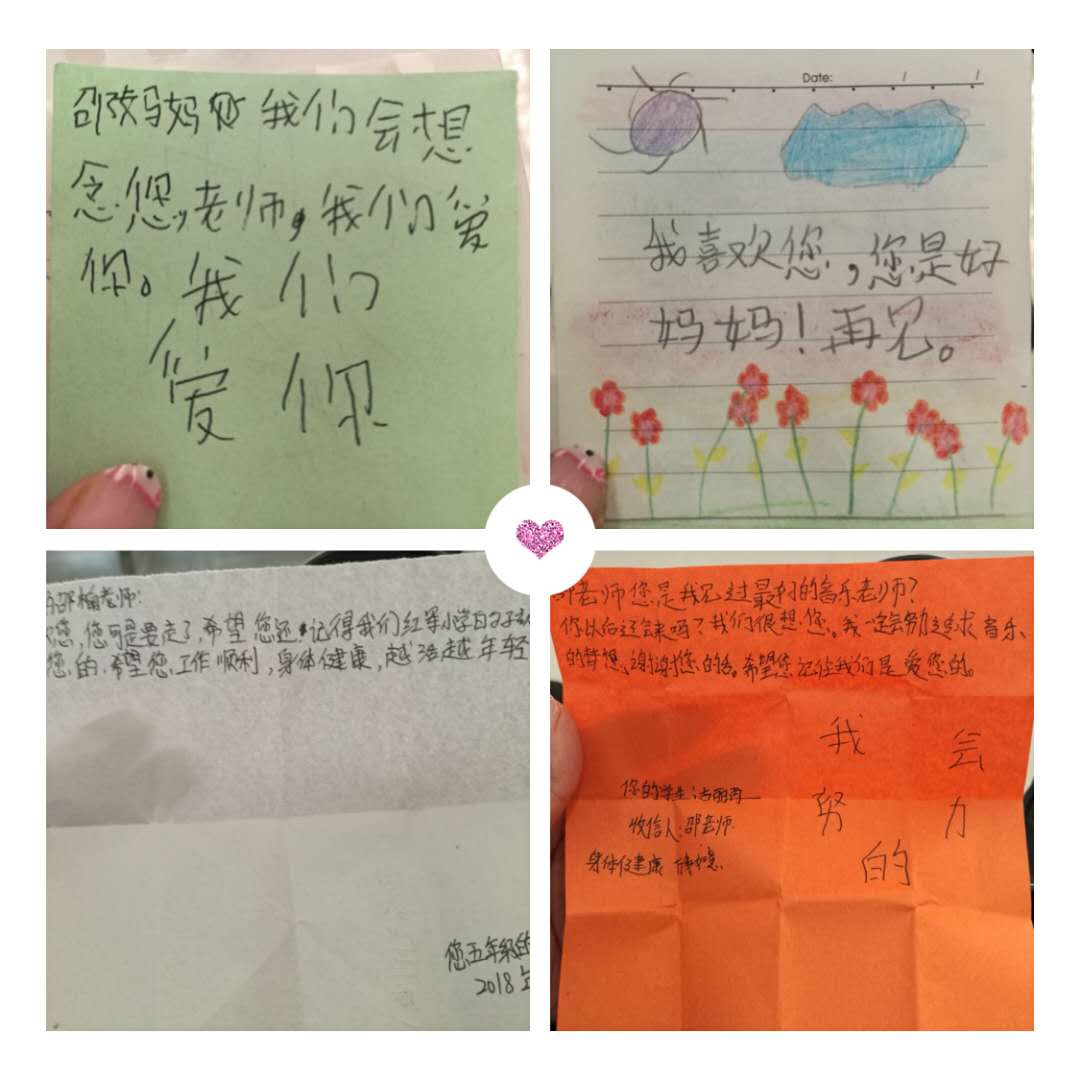 我们会想
念您,老师,我们爱
你。我们
爱你
Date: / /
我喜欢您,您是好
妈妈!再见。
老师:
您,您可是要走了,希望您还记得我们红军小学的
您的.希望您工作顺利,身体健康,越活越年轻
您五年级的
2018年
老师您是我见过最好的音乐老师?
你以后还会来吗?我们很想您。我一定会努力追求音乐
的梦想.谢谢您的.希望您记住我们是爱您的。
我会
努力
的
你的学生:
收信人:邵老师.
身体健康